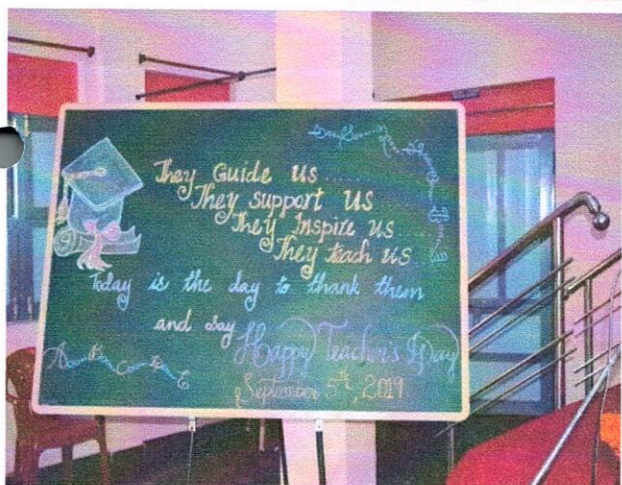 They Guide us......
They support us
They Inspire us
They teach us..
Today is the day to thank them
and say Happy Teacher's Day
September 5th, 2019
A B C D E